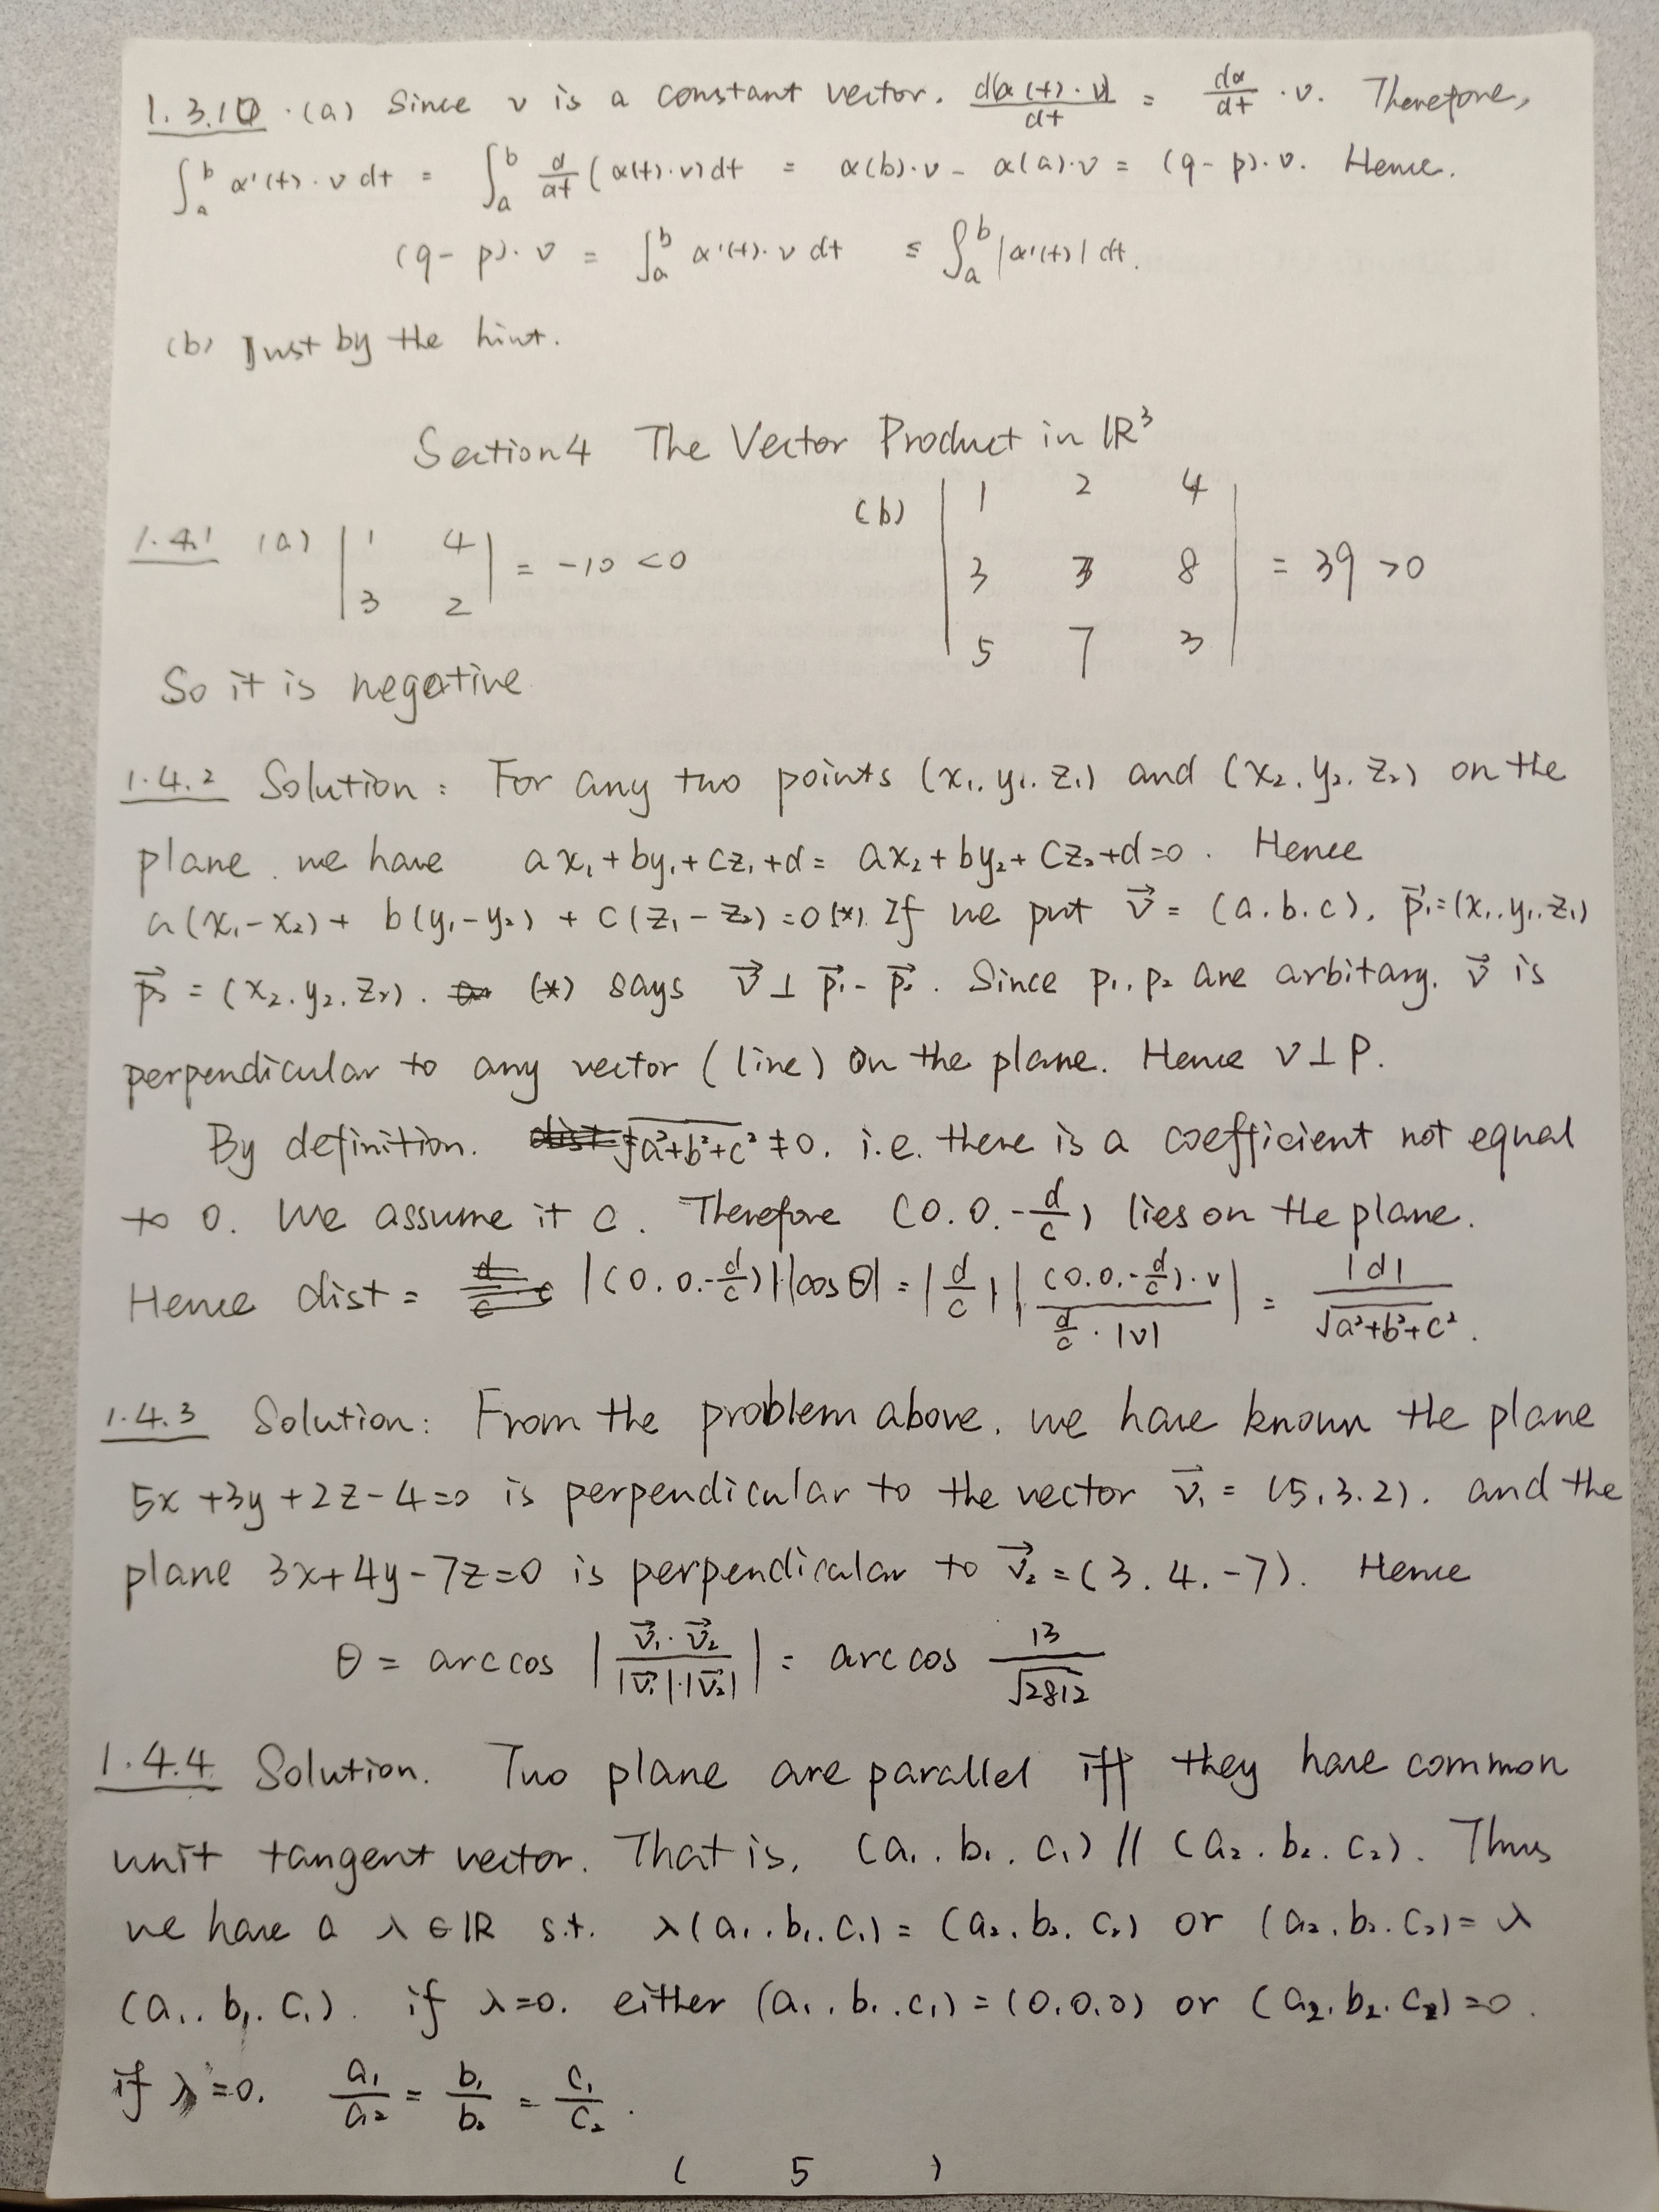 1.3.10 . (a) Since v is a constant vector. d(α(t)·v)/dt = dα/dt · v. Therefore,
∫_a^b α'(t)·v dt = ∫_a^b d/dt (α(t)·v)dt = α(b)·v - α(a)·v = (q-p)·v. Hence.
(q-p)·v = ∫_a^b α'(t)·v dt ≤ ∫_a^b |α'(t)| dt.
(b) Just by the hint.
Section4 The Vector Product in ℝ³
1.4.1 (a) | 1 4 ; 3 2 | = -10 <0 (b) | 1 2 4 ; 3 3 8 ; 5 7 3 | = 39 >0
So it is negative
1.4.2 Solution: For any two points (x₁, y₁, z₁) and (x₂, y₂, z₂) on the
plane. we have ax₁+by₁+cz₁+d= ax₂+by₂+cz₂+d=0. Hence
a(x₁-x₂)+ b(y₁-y₂) + c(z₁-z₂)=0 (*). If we put v⃗ = (a.b.c), p⃗₁=(x₁.y₁.z₁)
p⃗₂ = (x₂.y₂.z₂). (*) says v⃗ ⊥ p⃗₁- p⃗₂. Since p₁, p₂ are arbitary. v⃗ is
perpendicular to any vector (line) on the plane. Hence v⊥P.
By definition. √a²+b²+c² ≠0. i.e. there is a coefficient not equal
to 0. We assume it c. Therefore (0.0.-d/c) lies on the plane.
Hence dist = |(0.0.-d/c)|·|cosθ| = |d/c| | (0.0.-d/c)·v / (d/c · |v|) | = |d| / √a²+b²+c².
1.4.3 Solution: From the problem above, we have known the plane
5x+3y+2z-4=0 is perpendicular to the vector v⃗₁ = (5,3.2). and the
plane 3x+4y-7z=0 is perpendicular to v⃗₂=(3.4.-7). Hence
θ = arccos | v⃗₁·v⃗₂ / |v⃗₁|·|v⃗₂| | = arccos 13/√2812
1.4.4 Solution. Two plane are parallel iff they have common
unit tangent vector. That is, (a₁.b₁.c₁) // (a₂.b₂.c₂). Thus
we have a λ∈ℝ s.t. λ(a₁.b₁.c₁) = (a₂.b₂.c₂) or (a₂.b₂.c₂)=λ
(a₁.b₁.c₁). if λ=0. either (a₁.b₁.c₁)=(0.0.0) or (a₂.b₂.c₂)=0.
if λ =0. a₁/a₂ = b₁/b₂ = c₁/c₂.
( 5 )